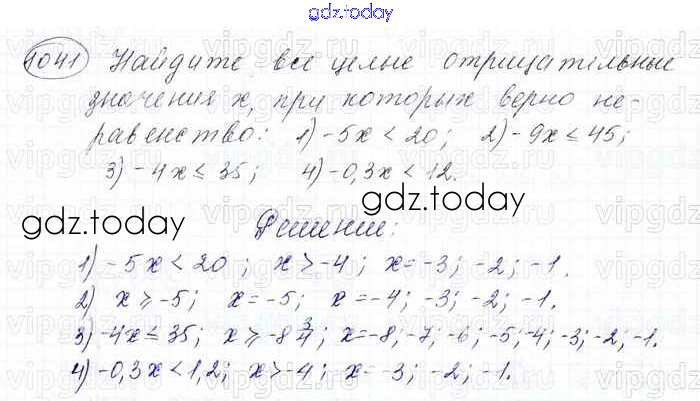 gdz.today
1041 Найдите все целые отрицательные
значения x, при которых верно не-
равенство: 1) -5x < 20; 2) -9x ≤ 45;
3) -4x ≤ 35; 4) -0,3x < 12.
gdz.today gdz.today
Решение:
1) -5x < 20; x > -4; x = -3; -2; -1.
2) x ≥ -5; x = -5; x = -4; -3; -2; -1.
3) -4x ≤ 35; x ≥ -8 3/4; x = -8; -7; -6; -5; -4; -3; -2; -1.
4) -0,3x < 1,2; x > -4; x = -3; -2; -1.